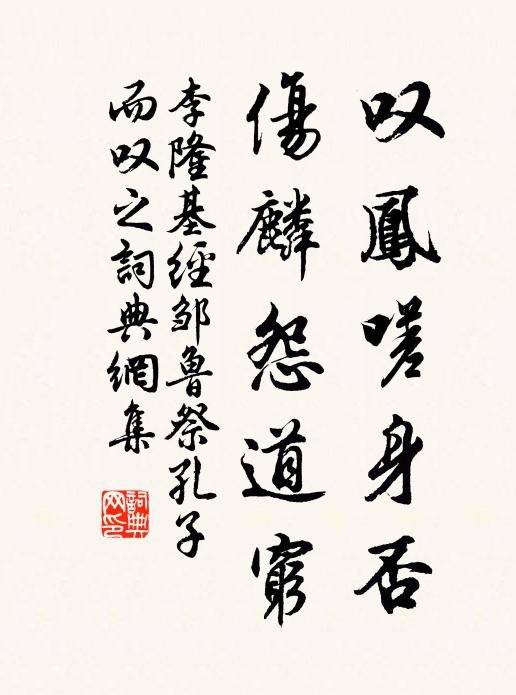 叹鳳嗟身否
傷麟怨道窮
李隆基經邹魯祭孔子
而叹之詞典網集
詞典
网印